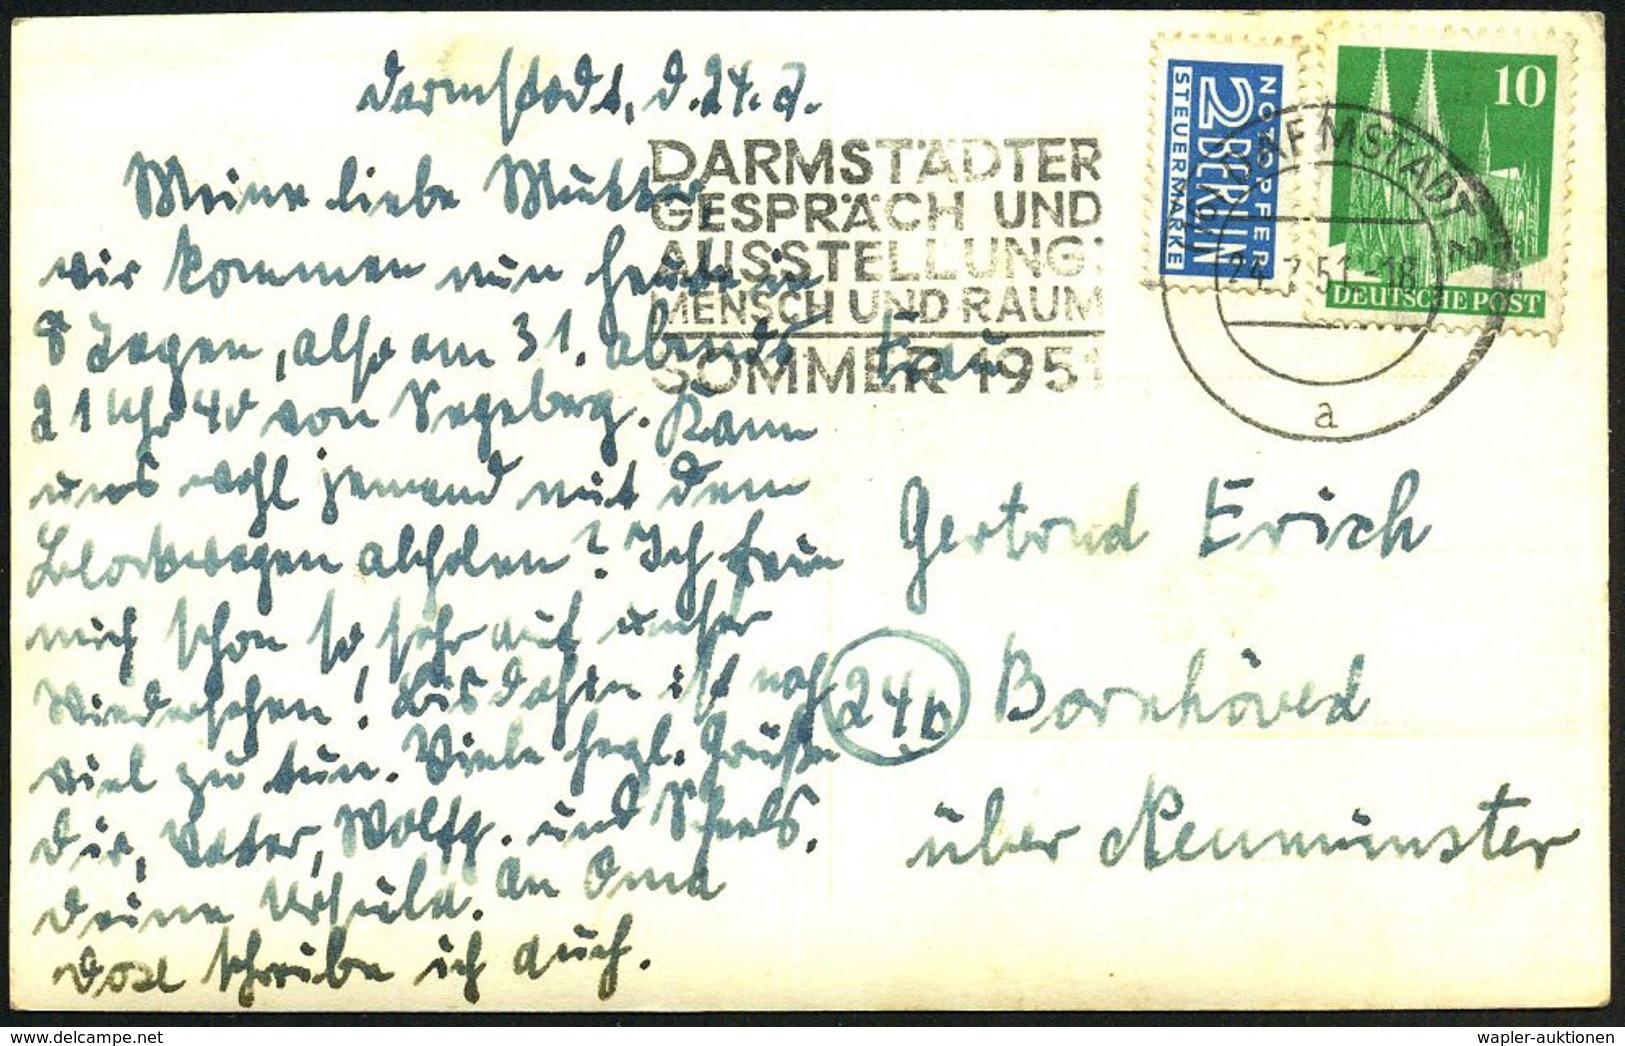 Darmstadt, d. 24. 7.
Meine liebe Mutter,
wir kommen nun heute in
8 Tagen, also am 31. abends
21 Uhr 40 von Segeberg. Kann
uns wohl jemand mit dem
Blockwagen abholen? Ich freu
mich schon so sehr auf unser
Wiedersehen! Bis dahin ist noch
viel zu tun. Viele herzl. Grüße
Dir, Vater, Wolfg. und
Deine Ursula. An Oma
schreibe ich auch.
DARMSTÄDTER
GESPRÄCH UND
AUSSTELLUNG:
MENSCH UND RAUM
SOMMER 1951
NOTOPFER
2 BERLIN
STEUERMARKE
10
DEUTSCHE POST
DARMSTADT 2
24.7.51-18
a
Frau
Gertrud Erich
24b
Bornhöved
über Neumünster
wapler-auktionen